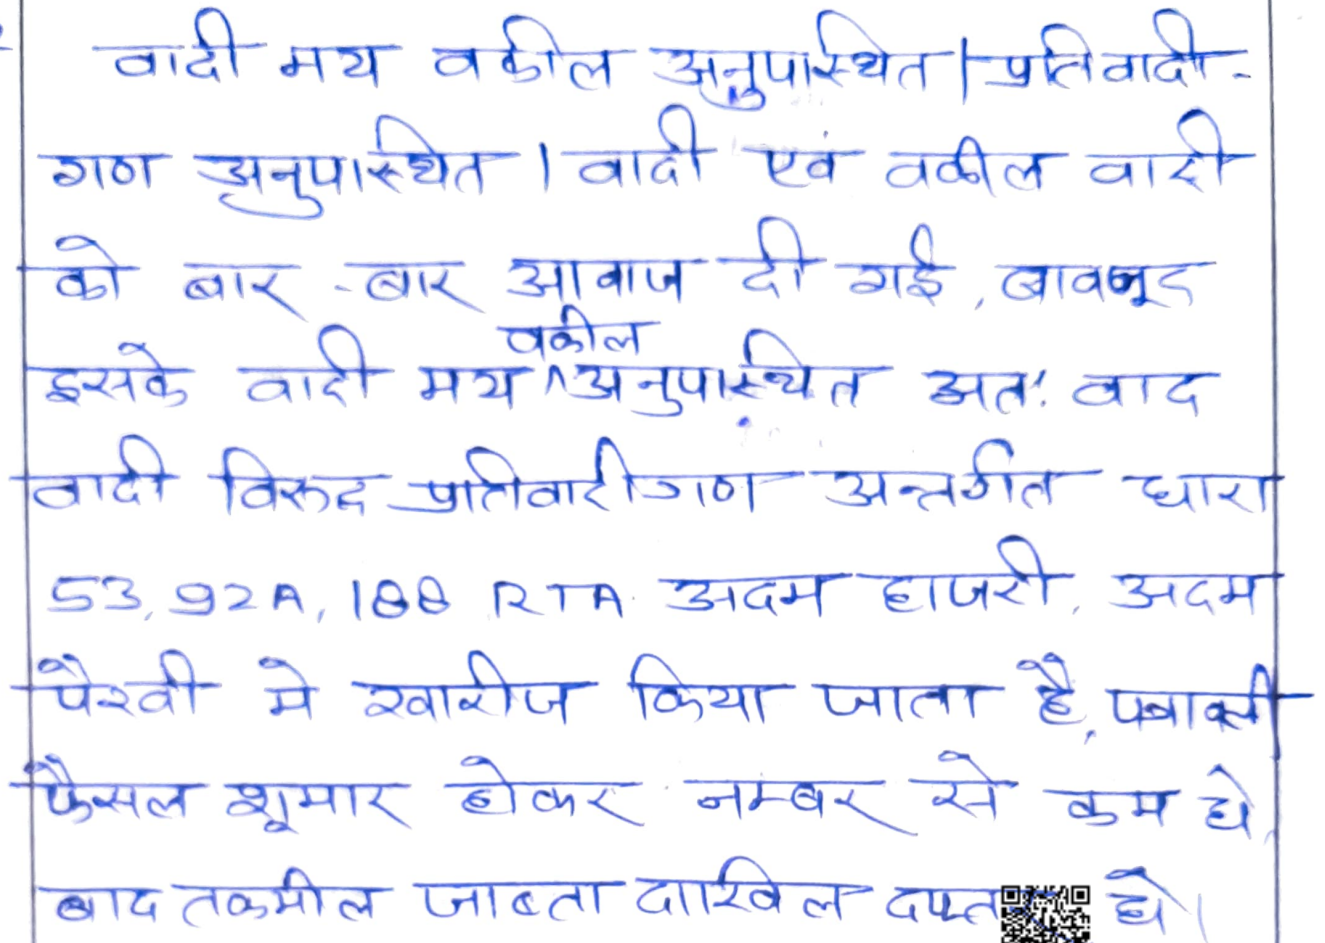 वादी मय वकील अनुपास्थित । प्रतिवादी-
गण अनुपास्थित । वादी एवं वकील वादी
को बार-बार आवाज दी गई, बावजूद
वकील
इसके वादी मय ^ अनुपास्थित अतः वाद
वादी विरूद प्रतिवादीगण अन्तर्गत धारा
53, 92A, 188 RTA. अदम हाजरी, अदम
पैरवी मे खारीज किया जाता है, पत्रावली
फैसल शूमार होकर नम्बर से कम हो,
बाद तकमील जाब्ता दाखिल हो।